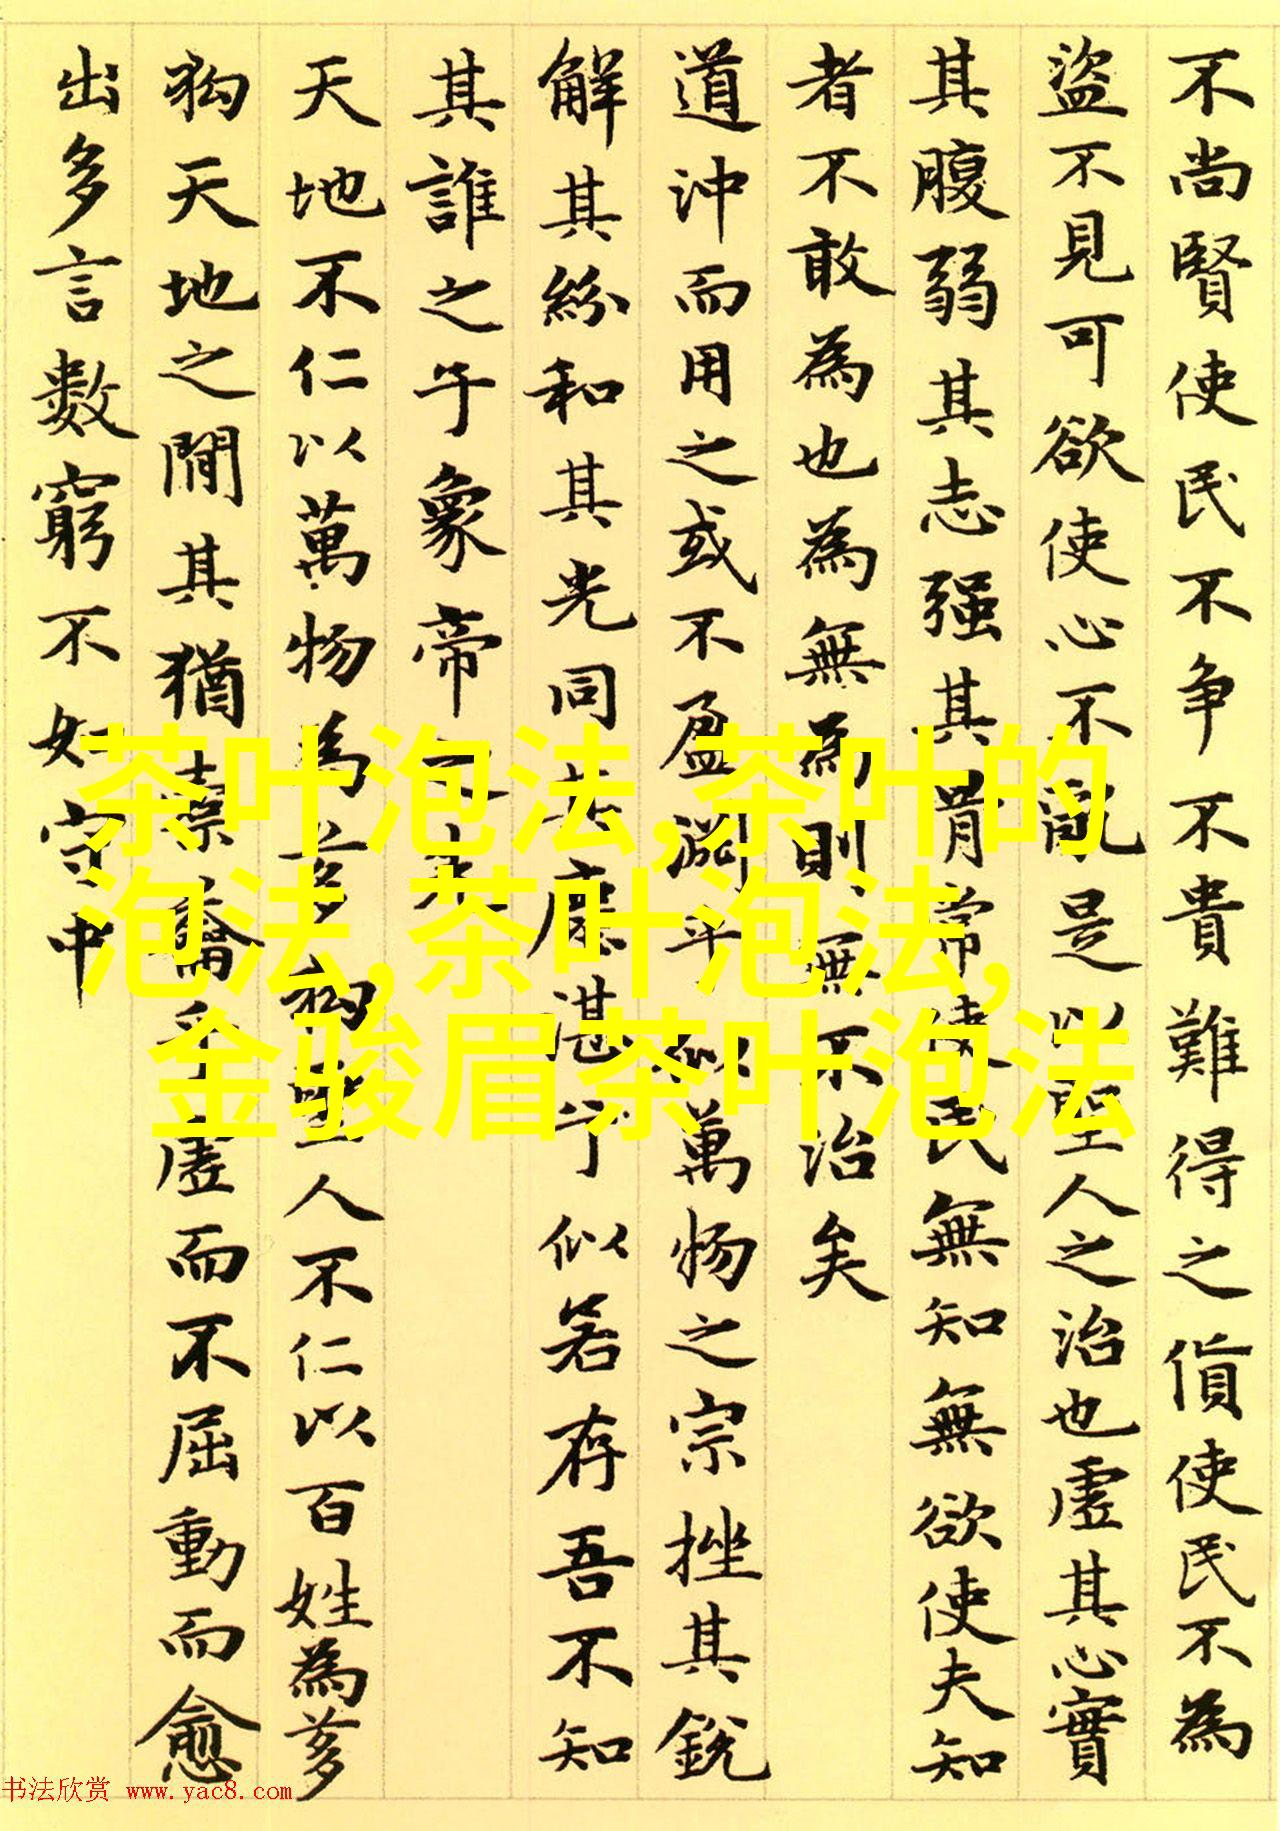 不尚賢使民不争不貴難得之貨使民不為
盜不見可欲使心不亂是以聖人之治也虛其心實
其腹弱其志强其骨常使民無知無欲使夫知
者不敢為也為無為則無不治矣
道沖而用之或不盈淵乎似萬物之宗挫其銳
解其紛和其光同其塵湛兮似若存吾不知
其誰之子象帝之先
天地不仁以萬物為芻狗聖人不仁以百姓為芻
狗天地之閒其猶橐籥乎虛而不屈動而愈
出多言數窮不如守中
茶叶泡法,茶叶的
泡法,茶叶泡法,
金骏眉茶叶泡法
书法欣赏 www.yac8.com